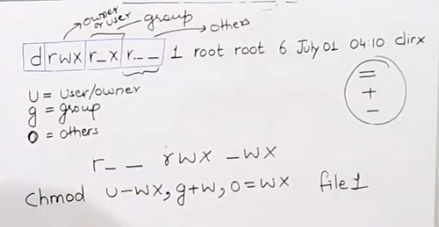 owner or user group others
drwxr_xr__ 1 root root 6 July 01 04:10 dirx
U = user/owner
g = group
O = others
=
+
-
r__ rwx -wx
Chmod u-wx,g+w,o=wx file1